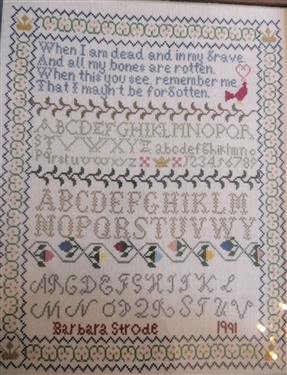 When I am dead and in my grave.
And all my bones are rotten.
When this you see, remember me
That I mayn't be forgotten.
ABCDEFGHIJKLMNOPQR
STUVWXYZ abcdefghijklmno
pqrstuvwxyz 123456789
ABCDEFGHIKLM
NOPQRSTUVWY
ABCDEFGHIKL
MNOPQRSTUV
Barbara Strode 1991